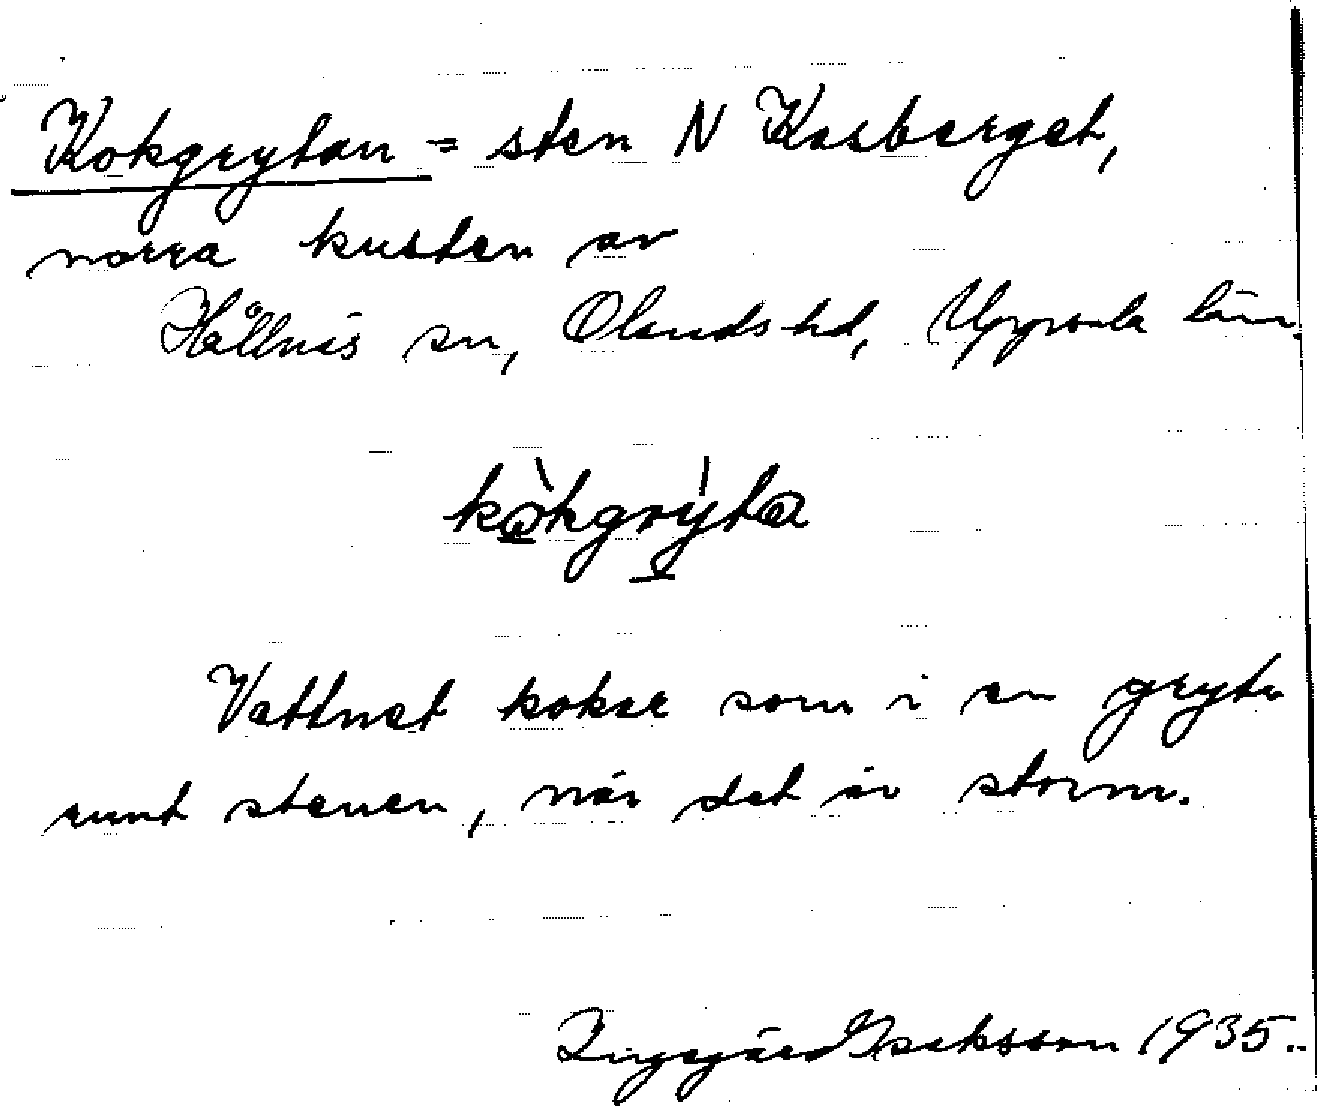 Kokgrytan = sten N Kasberget,
norra kusten av
Hållnäs sn, Olands hd, Uppsala län.
kòkgrỳta
Vattnet kokar som i en gryta
runt stenen, när det är storm.
Ingegärd Isaksson 1935.